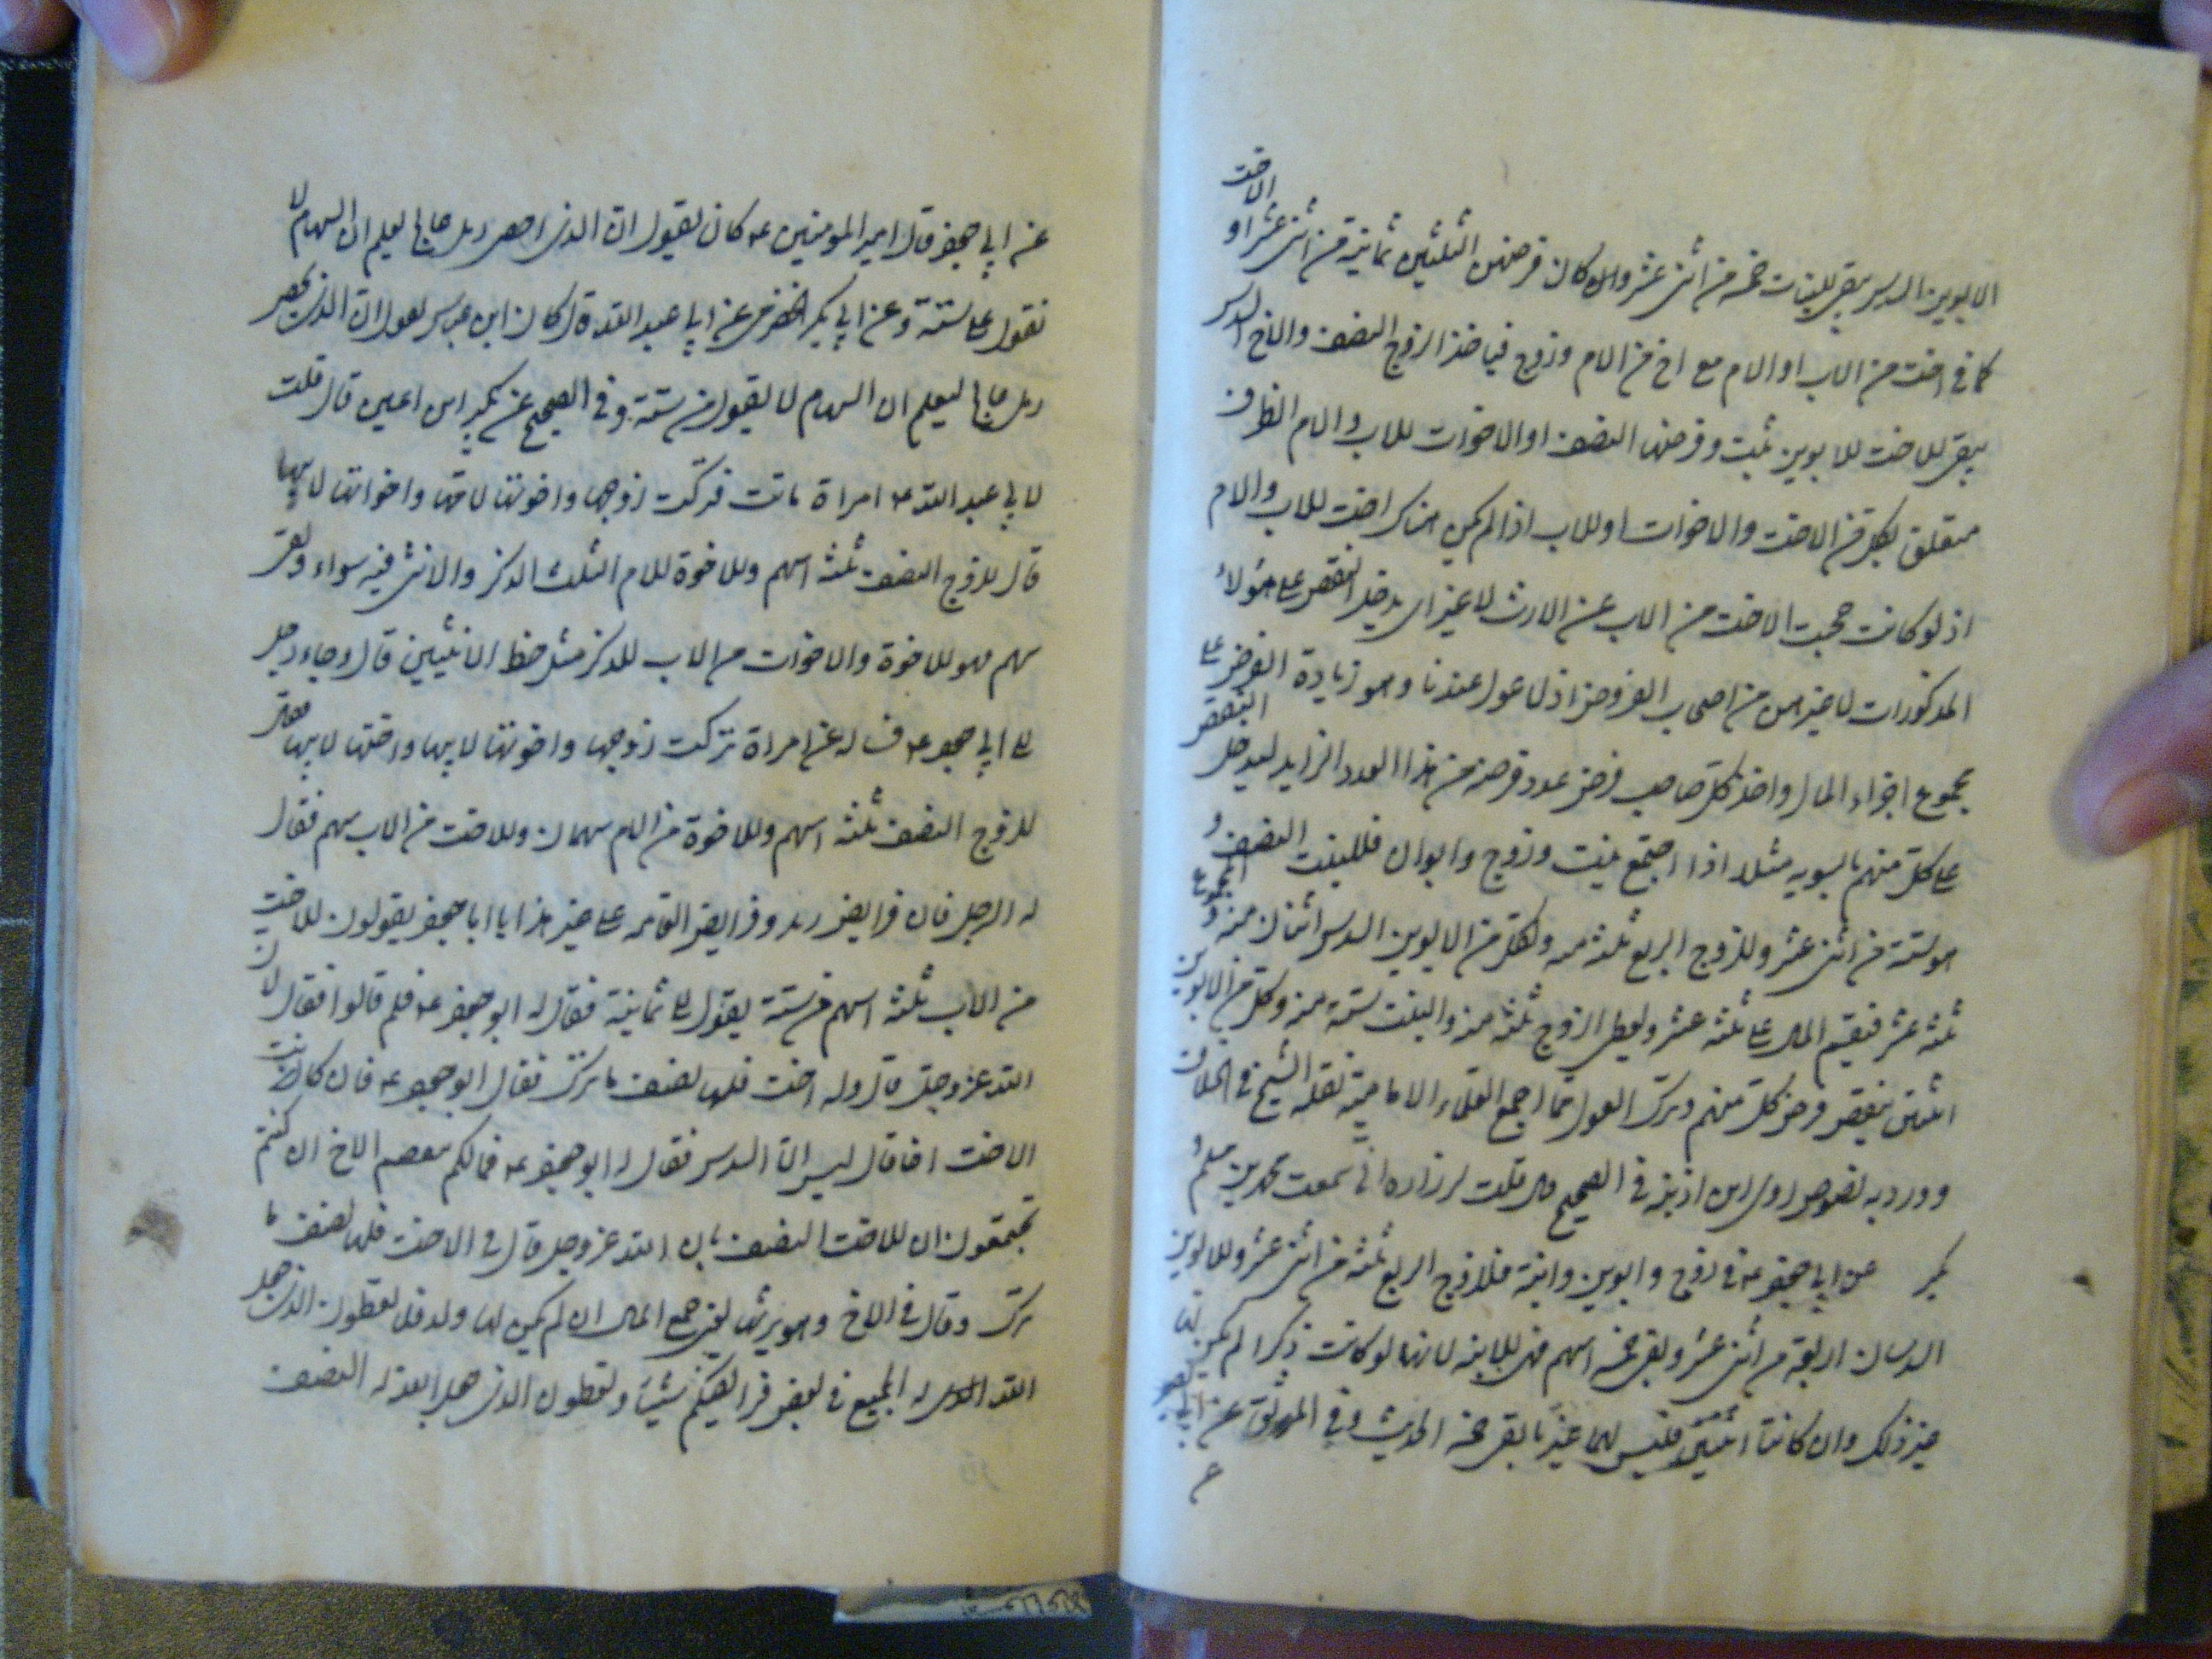 الابوين السدس يبقى للبنات خمسة من اثنى عشر والا كان فرضهن الثلثين ثمانية من اثنى عشر او الاخت
كما فى اخت من الاب او الام مع اخ من الام وزوج فياخذ الزوج النصف والاخ السدس
يبقى للاخت للابوين ثلث وفرضها النصف او الاخوات للاب والام الظرف
متعلق بكل من الاخت والاخوات او للاب اذا لم يكن هناك اخت للاب والام
اذ لو كانت حجبت الاخت من الاب عن الارث لا غير اى يدخل النقص على هؤلاء
المذكورات لا غيرهن من اصحاب الفروض اذ لا عول عندنا وهو زيادة الفرض على
مجموع اجزاء المال واخذ كل صاحب فرض عدد فرضه من هذا العدد الزايد ليدخل النقص
على كل منهم بالسويه مثلا اذا اجتمع بنت وزوج وابوان فللبنت النصف و
هو ستة من اثنى عشر وللزوج الربع ثلثة منه ولكل من الابوين السدس اثنان منه والمجموع
ثلثة عشر فيقسم المال على ثلثة عشر ويعطى الزوج ثلثة منه والبنت ستة منه وكل من الابوين
اثنين فينقص فرض كل منهم وترك العول مما اجمع العلماء الامامية نقله الشيخ فى الخلاف
وورد به نصوص اولى ابن اذينة فى الصحيح قال قلت لزرارة انى سمعت محمد بن مسلم و
بكير عن ابى جعفر ع فى زوج وابوين وابنة فللزوج الربع ثلثة من اثنى عشر وللابوين
السدسان اربعة من اثنى عشر وبقى خمسة اسهم فهى للابنة لانها لو كانت ذكرا لم يكن لها
غير ذلك وان كانتا اثنتين فليس لهما غير ما بقى خمسة الحديث وفى الموثق عن ابى بصير
عن ابى جعفر قال امير المومنين ع كان يقول ان الذى احصى رمل عالج ليعلم ان السهام لا
تعول على ستة وعن ابى بكر الحضرمى عن ابى عبد الله ع قال كان ابن عباس يقول ان الذى يحصى
رمل عالج ليعلم ان السهام لا يعول من ستة وفى الصحيح عن بكير ابن اعين قال قلت
لابى عبد الله ع امراة ماتت فتركت زوجها واخوتها لامها واخواتها لابيها
قال للزوج النصف ثلثه اسهم وللاخوة للام الثلث الذكر والانثى فيه سواء وبقى
سهم فهو للاخوة والاخوات من الاب للذكر مثل حظ الانثيين قال وجاء رجل
الى ابى جعفر ع فساله عن امراة تركت زوجها واخوتها لابيها واختها لابيها فقال
للزوج النصف ثلثه اسهم وللاخوة من الام سهمان وللاخت من الاب سهم فقال
له الرجل فان فرايض زيد وفرايض العامه على غير هذا يا ابا جعفر يقولون للاخت
من الاب ثلثة اسهم من ستة يعول الى ثمانية فقال له ابو جعفر ع فلم قالوا فقال لان
الله عز وجل قال وله اخت فلها نصف ما ترك فقال ابو جعفر ع فان كانت
الاخت اخا قال ليس الا السدس فقال له ابو جعفر ع فما لكم نقصتم الاخ ان كنتم
تحتجون ان للاخت النصف بان الله عز وجل قال فى الاخت فلها نصف ما
ترك وقال فى الاخ وهو يرثها يعنى جميع المال ان لم يكن لها ولد فلا تعطون الذى جعل
الله له الجميع فى بعض فرايضكم شيئا وتعطون الذى جعل الله له النصف